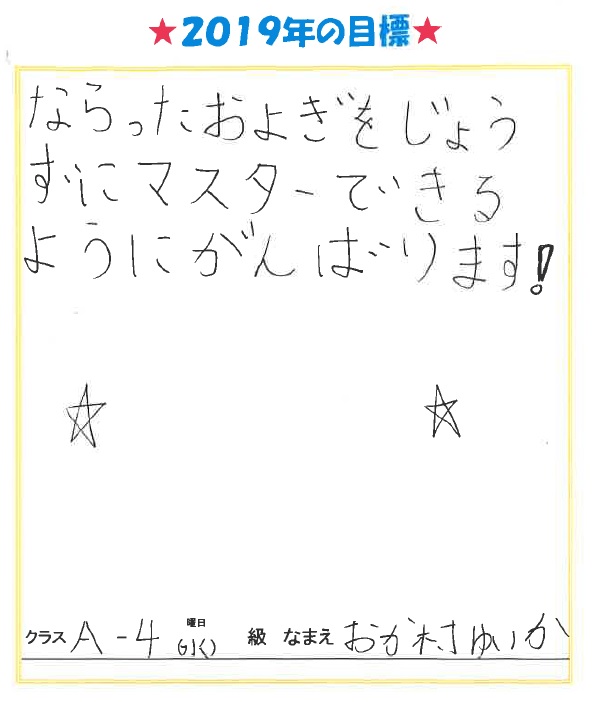 ★2019年の目標★
ならったおよぎをじょう
ずにマスターできる
ようにがんばります!
クラス A-4 曜日 級 なまえ おか村ゆいか